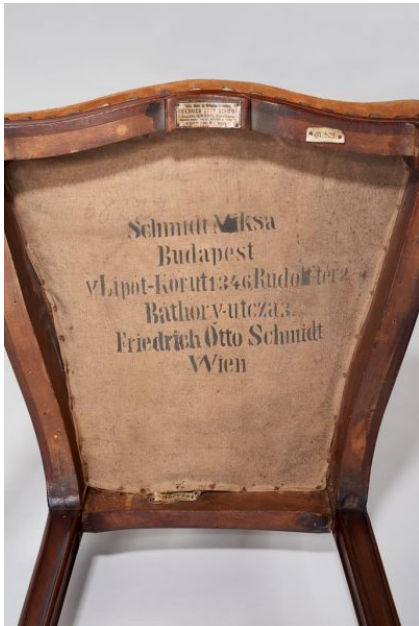 Schmidt Miksa
Budapest
V Lipót-Körut 1346 Rudolf ter 2
Báthory-utcza 3.
Friedrich Otto Schmidt
Wien